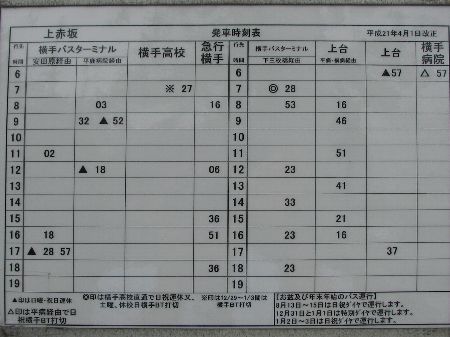 上赤坂 発車時刻表 平成21年4月1日改正
行先 横手バスターミナル 横手高校 急行横手 行先 横手バスターミナル 上台 上台 横手病院
時間 安田原経由 平鹿病院経由 時間 下三枚橋経由 平病・横病経由
6 6 ▲57 △57
7 ※27 7 ◎28
8 03 16 8 53 16
9 32 ▲52 9 46
10 10
11 02 11 51
12 ▲18 06 12 23
13 13 41
14 14 33
15 36 15 21
16 18 51 16 23 16
17 ▲28 57 17 37
18 36 18 23
19 19
▲印は日曜・祝日運休
△印は平鹿経由で日祝横手BT打切
◎印は横手高校直通で日祝運休又、土曜、休校日横手BT打切
※印は12/29~1/3間は横手BT打切
【お盆及び年末年始のバス運行】
8月13日~15日は日祝ダイヤで運行します。
12月31日と1月1日は特別ダイヤで運行します。
1月2日~3日は日祝ダイヤで運行します。